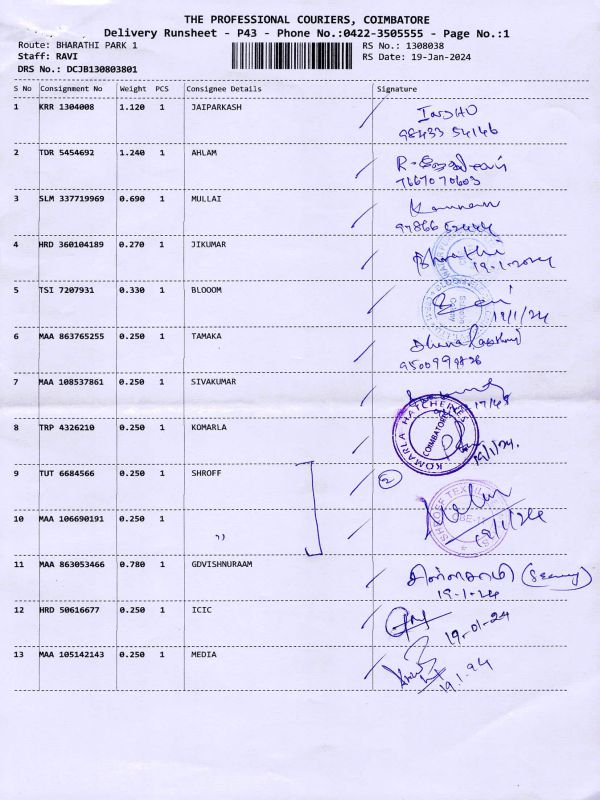 THE PROFESSIONAL COURIERS, COIMBATORE
Delivery Runsheet - P43 - Phone No.:0422-3505555 - Page No.:1
Route: BHARATHI PARK 1 RS No.: 1308038
Staff: RAVI RS Date: 19-Jan-2024
DRS No.: DCJB130803801
S No Consignment No Weight PCS Consignee Details Signature
1 KRR 1304008 1.120 1 JAIPARKASH
98433 54146
2 TDR 5454692 1.240 1 AHLAM
7667070603
3 SLM 337719969 0.690 1 MULLAI
4 HRD 360104189 0.270 1 JIKUMAR Bharathi
19-1-2024
5 TSI 7207931 0.330 1 BLOOOM
19/1/24
6 MAA 863765255 0.250 1 TAMAKA
7 MAA 108537861 0.250 1 SIVAKUMAR
8 TRP 4326210 0.250 1 KOMARLA KOMARLA HATCHERIES COIMBATORE
19/1/24.
9 TUT 6684566 0.250 1 SHROFF 2
10 MAA 106690191 0.250 1 〃
19/1/24
11 MAA 863053466 0.780 1 GDVISHNURAAM
19-1-24
12 HRD 50616677 0.250 1 ICIC
19-01-24
13 MAA 105142143 0.250 1 MEDIA
19.1.24